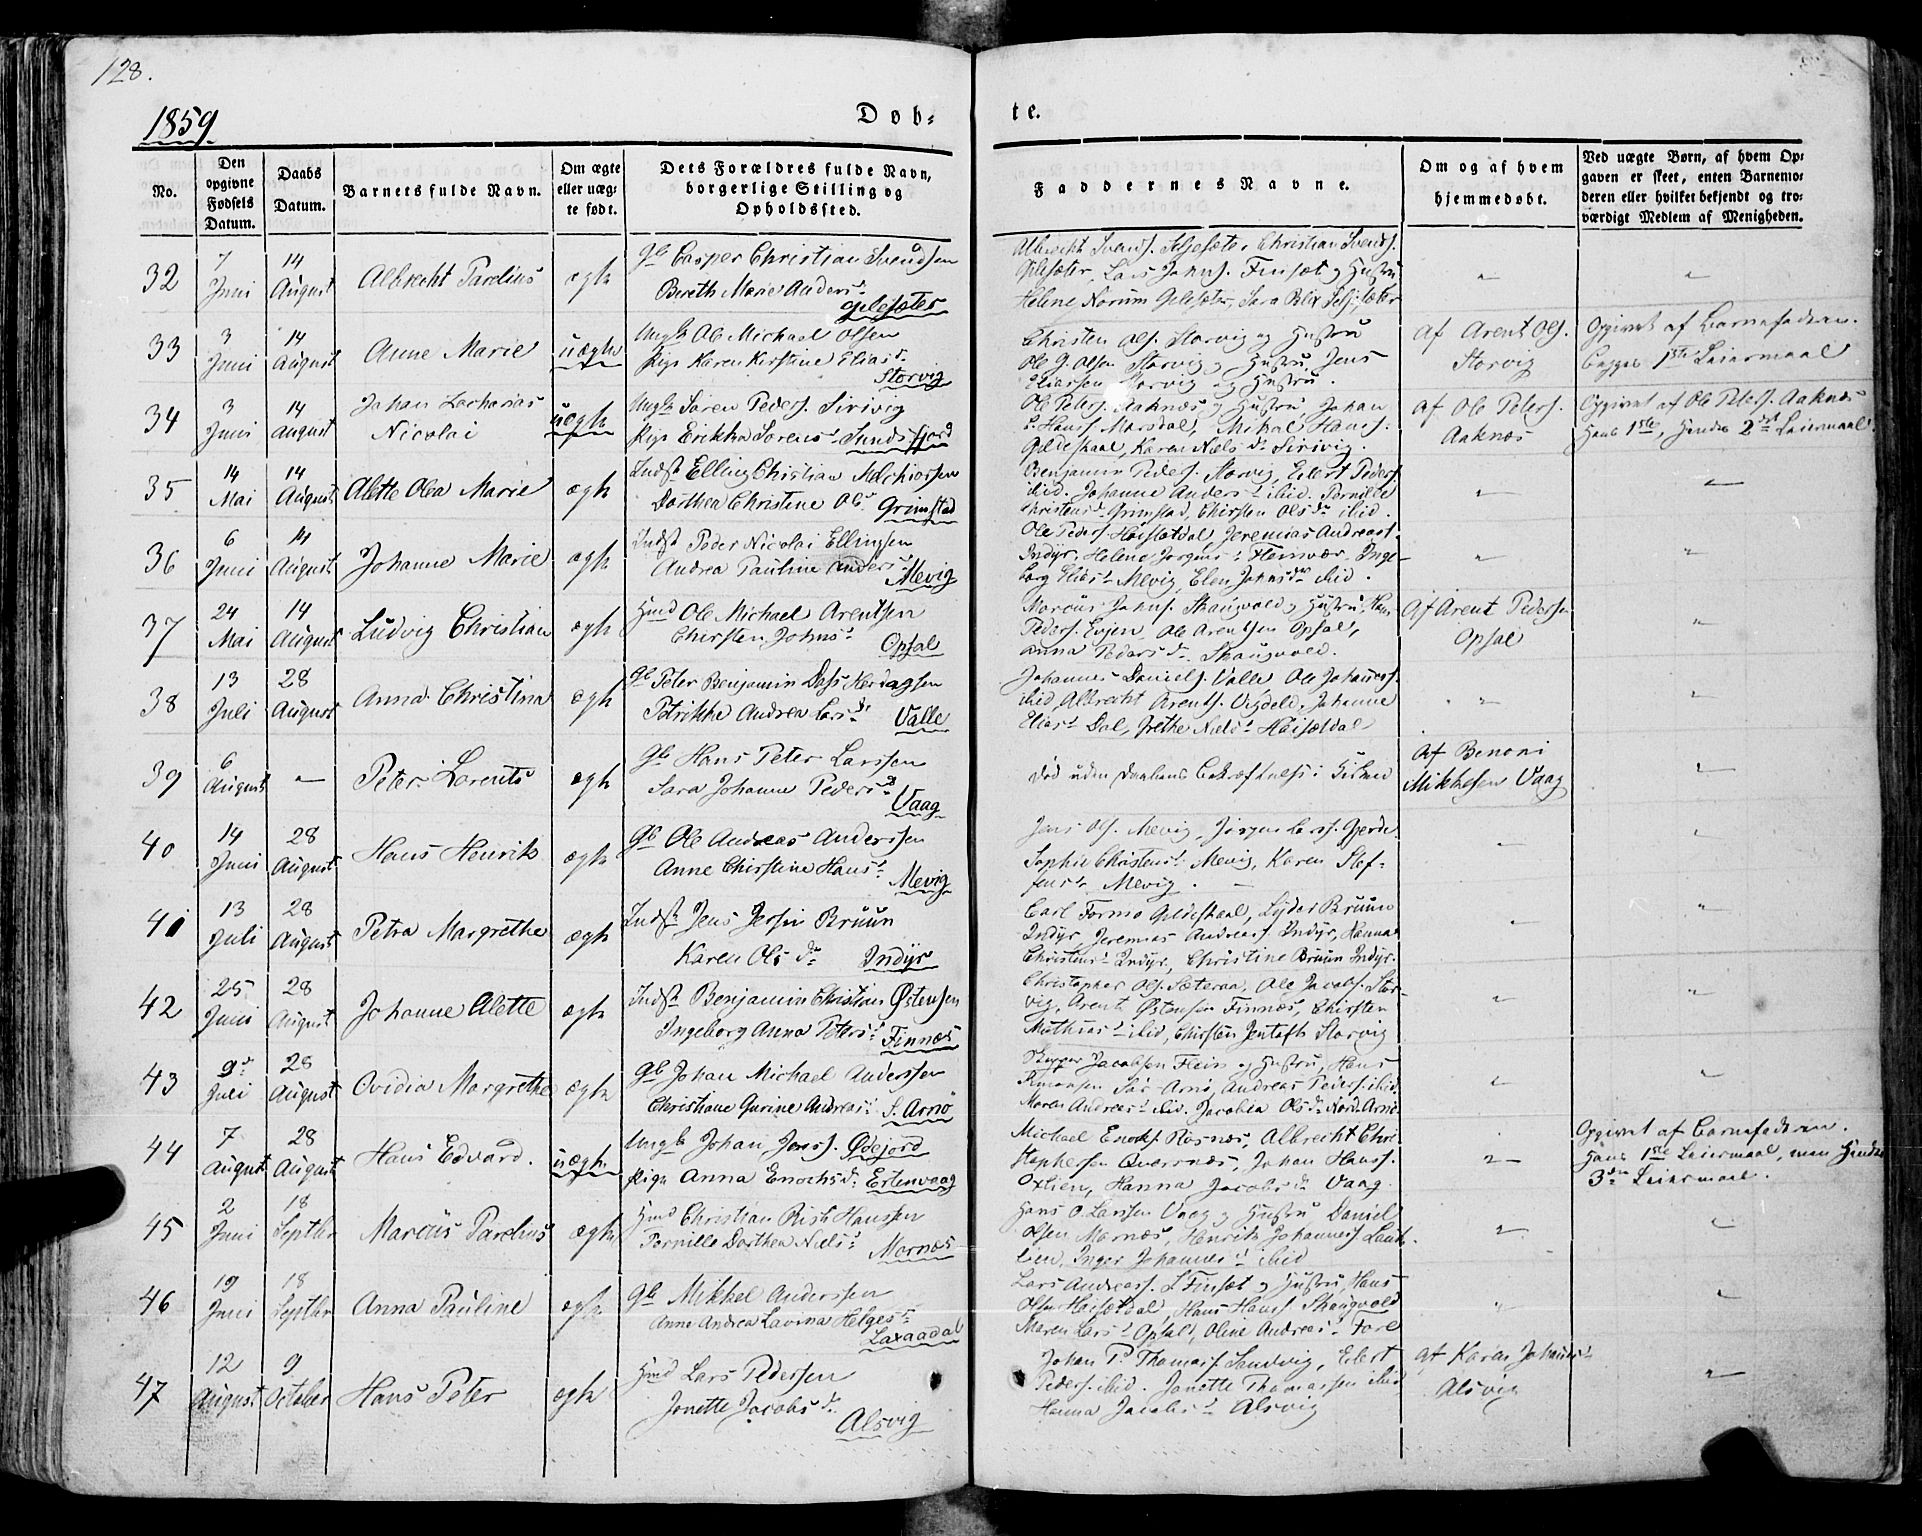 128.
1859
Døb-
te.
No.
Den opgivne Fødsels Datum.
Daabs Datum.
Barnets fulde Navn.
Om ægte eller uægte født.
Dets Forældres fulde Navn, borgerlige Stilling og Opholdssted.
Faddernes Navne.
Om og af hvem hjemmedøbt.
Ved uægte Børn, af hvem Opgaven er skeet, enten Barnemoderen eller hvilket bekjendt og troværdigt Medlem af Menigheden.
32 7 Juni 14 August Albrecht Parelius ægte
Gb Casper Christian Svendsen
Bereth Marie Anders d.
Gilesæter
Albrecht Svends. Christian Svends.
Gilesæter, Lars Johns. Finsæt og Hustru
Helene Norum Gilesæter, Sara Blix
33 3 Juni 14 August Anne Marie uægte
Ungk Ole Michael Olsen
Pige Karen Kirstine Elias d.
Storvig
Christen Ols. Storvig og Hustru
Ole G. Olsen Storvig og Hustru, Jens
Eliassen Storvig og Hustru.
Af Arent Ols. Storvig
Opgivet af Barnefaderen.
Begges 1ste Leiermaal
34 3 Juni 14 August Johan Zacharias Nicolai uægte
Ungk Søren Peders. Sirivig
Pige Erikka Sørens d. Sundsfjord
Ole Peters. Aaknæs og Hustru Johan
Hans. Marsdal, Mikal Hans.
Gildeskaal, Karen Niels d. Sirivig.
af Ole Peters. Aaknæs
Opgivet af Ole Peters. Aaknæs
Hans 1ste, Hendes 2det Leiermaal.
35 14 Mai 14 August Alette Olea Marie ægte
Indst Elling Christian Melchiorsen
Dorthea Christine Ols d. Grimstad
Benjamin Peders. Storvig, Eilert Peders.
ibid. Johanne Anders d. ibid. Pernille
Christens d. Grimstad, Chirsten Ols d. ibid.
36 6 Juni 14 August Johanne Marie ægte
Indst Peder Nicolai Ellingsen
Andrea Pauline Anders d.
Mevig
Ole Peders. Høisletdal, Jeremias Andreas.
Indyr, Helene Jørgens d. Flemvær, Inge-
borg Elias d. Mevig, Elen Johns d. ibid.
37 24 Mai 14 August Ludvig Christian ægte
Hmd Ole Michael Arentsen
Chirsten Johns d.
Opsal
Marcus Johns. Skaugvold og Hustru, Hans
Peders. Evjen, Ole Arentsen Opsal,
Anna Peders d. Skaugvold.
Af Arent Pedersen Opsal
38 13 Juli 28 August Anna Christina ægte
Gb Peter Benjamin Dass Hertagsen
Petrikke Andrea Lars d. Valle
Johannes Daniels. Valle Ole Johannes.
ibid, Albrecht Arents. Vigdel, Johanne
Elias d. Dal, Grethe Niels d. Høisletdal
39 6 August Peter Lorents ægte
Gb Hans Peter Larssen
Sara Johanne Peders d.
Vaag
Død uden Daabens Bekræftnelse i Kirken
Af Benoni Mikkelsen Vaag
40 14 Juni 28 August Hans Henrik ægte
Gb Ole Andreas Anderssen
Anne Chirstine Hans d.
Mevig
Jens Ols. Mevig, Jørgen Lars. Gjerde
Sophie Christens d. Mevig, Karen Stef-
fens d. Mevig.
41 13 Juli 28 August Petra Margrethe ægte
Indst Jens Jersin Bruun
Karen Ols d. Indyr
Carl Formo Gildeskaal, Lyder Bruun
Indyr, Jeremias Andreas. Indyr, Hanna
Christens d. Indyr, Christine Bruun Indyr.
42 25 Juni 28 August Johanne Alette ægte
Indst Benjamin Christian Østensen
Ingeborg Anna Peters d. Finnæs
Christopher Ols. Sæteraa, Ole Jacobs. Stor-
vig, Arent Østensen Finnæs, Chirsten
Mathias d. ibid, Chirsten Jentoft Storvig
43 9 Juli 28 August Ovidia Margrethe ægte
Gb Johan Michael Anderssen
Christiane Gurine Andreas d. S. Arnø
Jacobsen Flein og Hustru, Hans
Simonsen Sør Arnø, Andreas Peders. ibid.
Maren Andreas d. ibid. Jacobia Ols d. Nord Arnø
44 7 August 28 August Hans Edvard. uægte
Ungk Johan Jens. Ødejord
Pige Anna Enochs d. Ertenvaag
Michael Enochs. Røsnæs, Albrecht Chri-
stophersen Qvarsnæs, Johan Hans.
Oxlien, Hanna Jacobs d. Vaag.
Opgivet af Barnefaderen.
Hans 1ste Leiermaal, men Hendes
3die Leiermaal.
45 2 Juni 18 Septbr Marcus Parelius ægte
Hmd Christian Rist Hanssen
Pernille Dorthea Niels d.
Mornæs
Hans O. Larssen Vaag og Hustru Daniel
Olsen Mornæs, Henrik Johannes.
lien, Inger Johannes d. ibid
46 19 Juni 18 Septbr Anna Pauline ægte
Gb Mikkel Anderssen
Anne Andrea Lavina Helges d.
Laxaadal
Lars Andreas. Finsæt og Hustru, Hans
Olsen Høisletdal, Hans Hans. Skaugvold
Maren Lars d. Opsal, Oline Andreas d. Fore
47 12 August 9 October Hans Peter ægte
Hmd Lars Pedersen
Jonette Jacobs d.
Alsvig
Johan P. Thomas. Sandvig, Eilert
Peders. ibid. Jonette Thomassen ibid
Hanna Jacobs d. Alsvig
Af Karen Johannes d. Alsvig